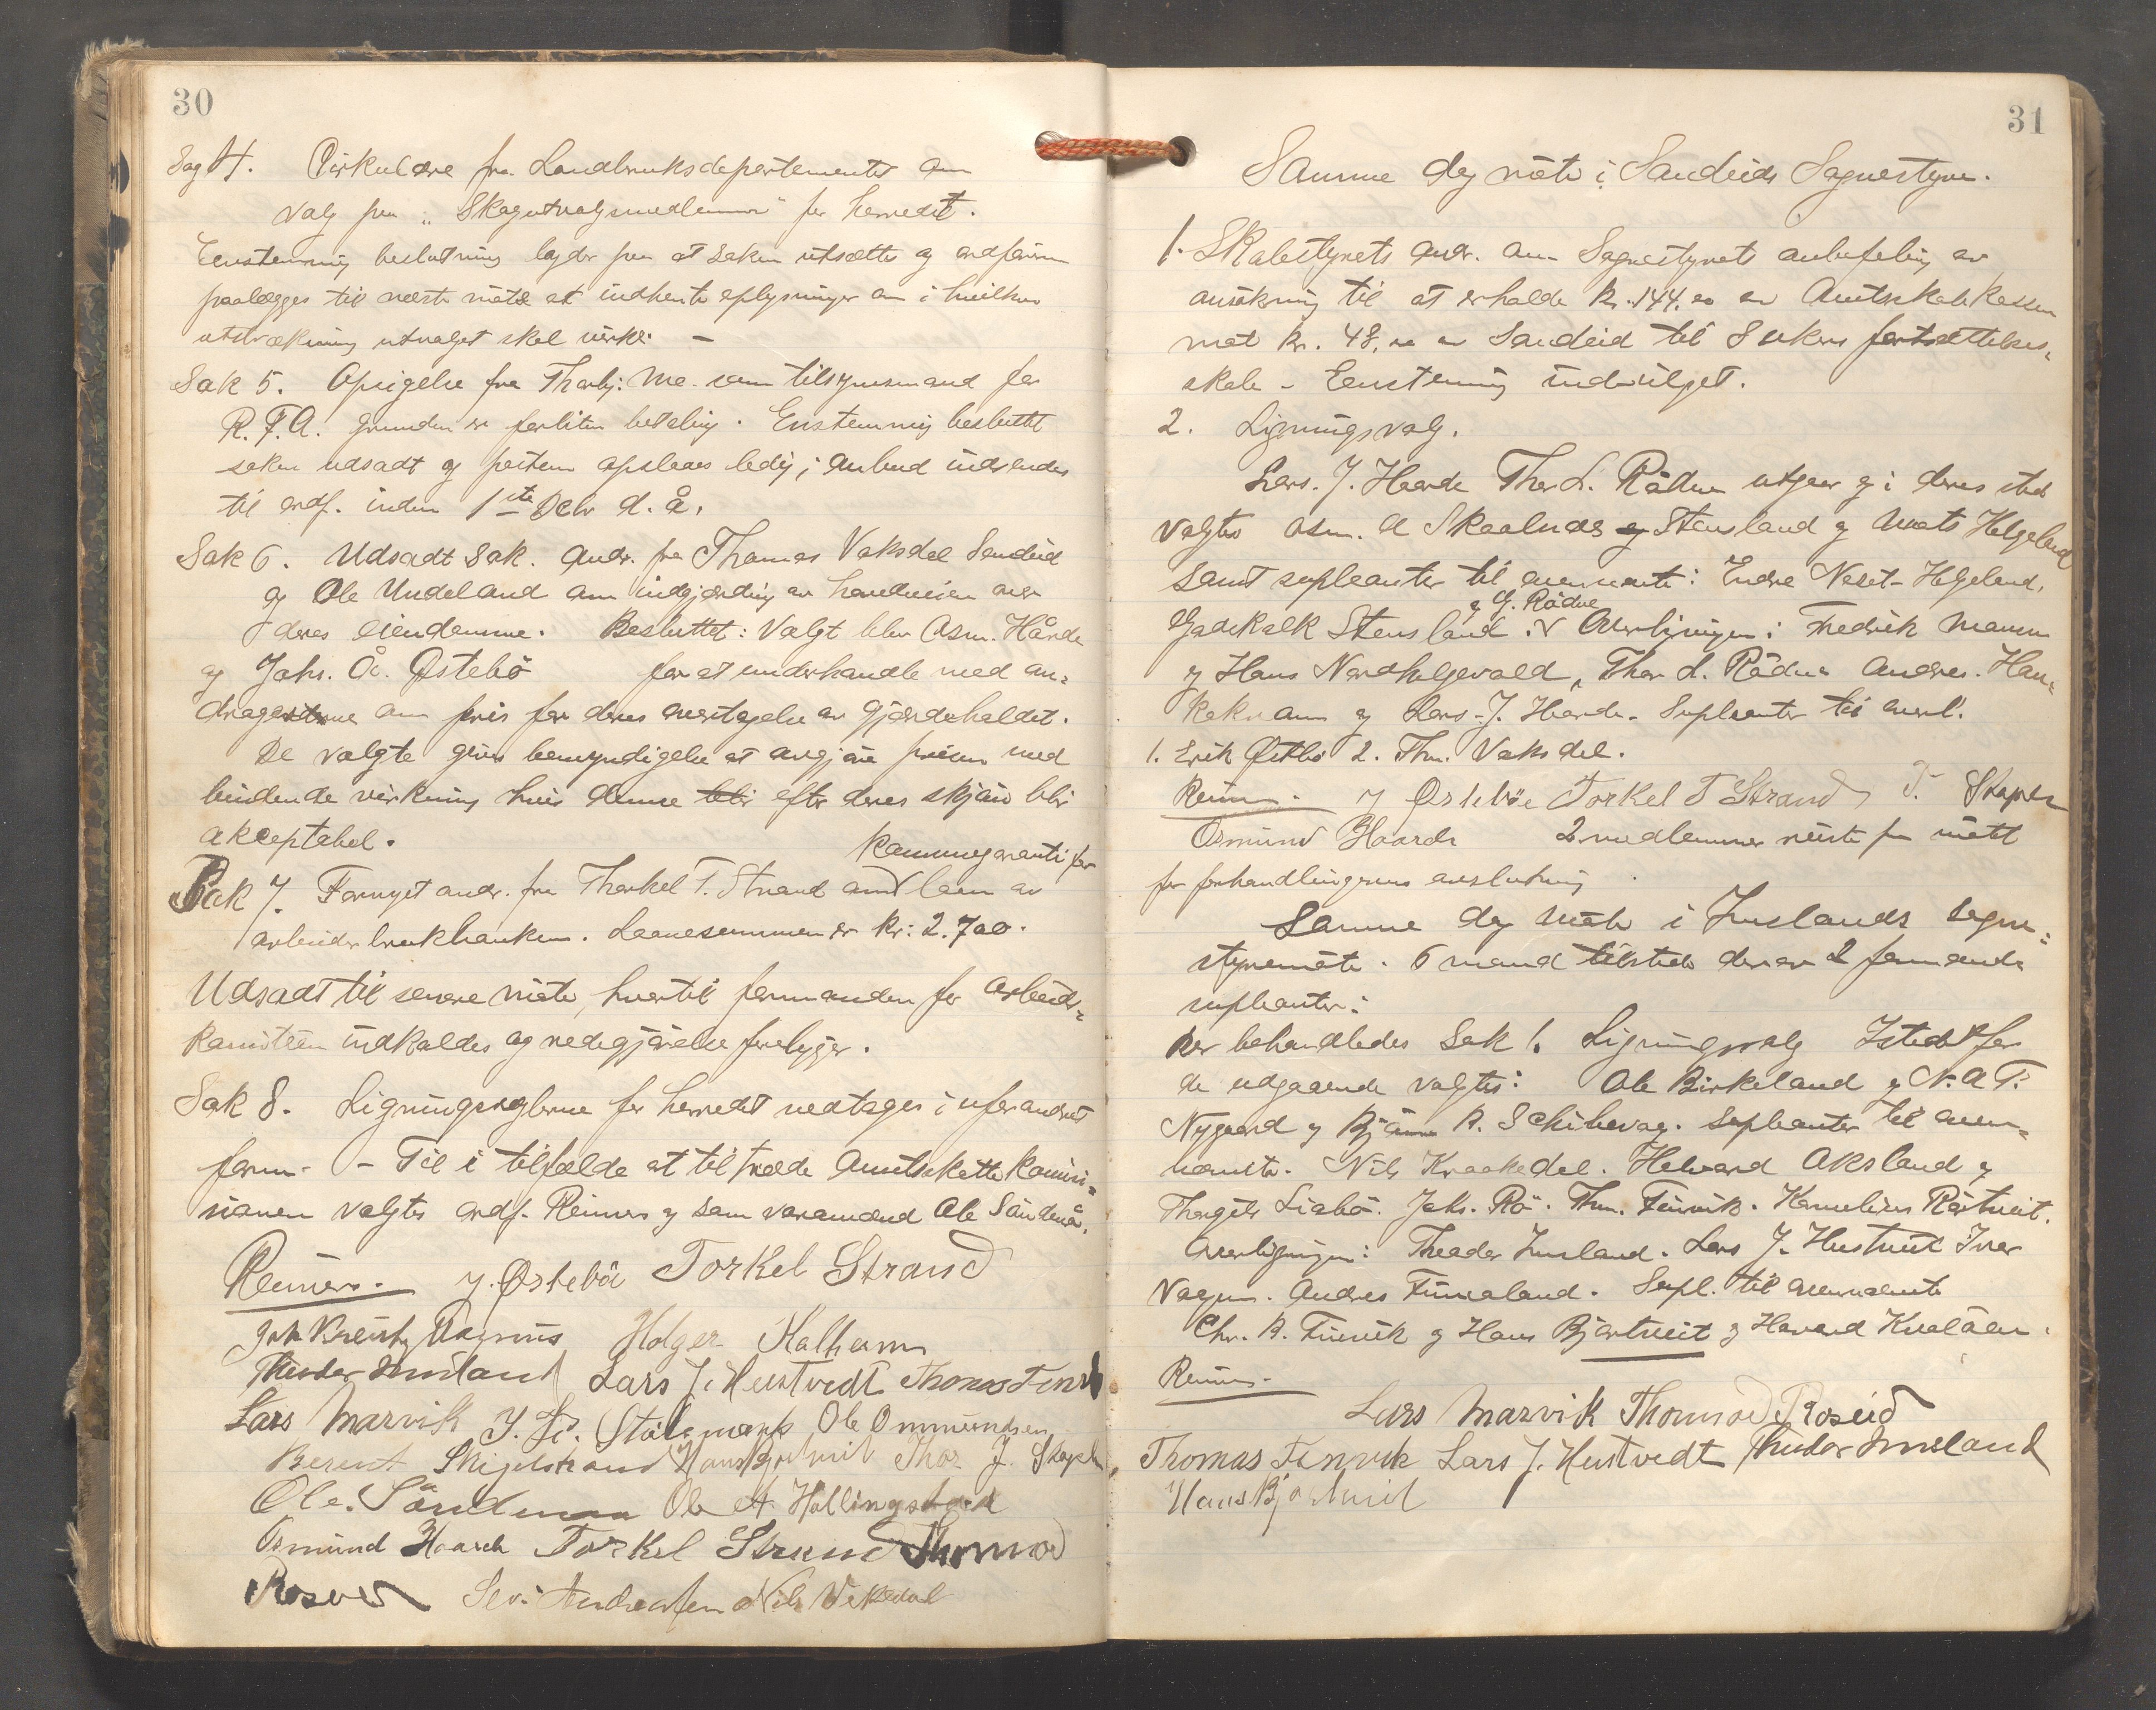 30
Sag 4. Cirkulære fra Landbruksdepartementet om
valg paa "Skogutvalgsmedlemmer" for herredet.
Eenstemmig beslutning lyder paa at saken utsættes og ordføreren
paalægges til næste möte at indhente oplysninger om i hvilken
utstrækning utvalget skal virke. —
Sak 5. Opsigelse fra Thorbj: Mo. som tilsynsmand for
R.F.A. grunden er forliten betaling. Enstemmig besluttet
saken udsadt og posten opslaaes ledig; Anbud indsendes
til ordf. inden 1ste Debr d. å.
Sak 6. Udsadt Sak. Andr. fra Thomas Vaksdal Sandeid
og Ole Undeland om indgjerding av hovedveien over
deres eiendomme. Besluttet: Valgt blev Asm. Hårde
og Johs. Å. Östebö for at underhandle med an-
dragerne om pris for deres overtagelse av gjerdeholdet.
De valgte gives bemyndigelse at avgjöre prisen med
bindende virkning hvis denne efter deres skjön blir
akceptabel.
kommunegaranti for
Sak 7. Fornyet andr. fra Thorkel T. Strand om laan av
arbeiderbrukbanken. Laanesummen er kr: 2.700.
Udsadt til senere möte, hvortil formanden for arbeids-
komiteen indkaldes og redegjörelse forelægger.
Sak 8. Ligningsreglerne for herredet vedtages i uforandret
form. – Til i tilfælde at tiltræde Amtsskattekommi-
sionen valgtes ordf. Reimers og som varamand Ole Söndenå.
Reimers. J. Östebö Torkel Strand
Joh Kreutz Magnus Holger Kalheim
Theodor Imsland Lars J. Hustvedt Thomas Finvik
Lars Marvik Ole Ommundsen
Berent Skigelstrand Hans Bjortveit Thor J. Skaph
Ole. Söndenaa Ole A Hallingstad
Osmund Haarde Torkel Strand Thormod
Roseid Sev: Andreassen Nils Vikedal
31
Samme dag möte i Sandeids Sognestyre.
1. Skolestyrets andr. om Sognestyrets anbefaling av
ansökning til at erholde kr. 144.00 av Amtsskolekassen
mot kr. 48.00 av Sandeid til 8 ukers fortsættelses-
skole – Eenstemmig indvilget.
2. Ligningsvalg.
Lars. J. Haarde Thor L. Rödne utgaar og i deres sted
valgtes Asm. A Skaalnes Stensland og Mats Helgeland
samt supleanter til ovennævnte: Endre Neset-Helgeland,
og G. Rödne
Gadskalk Stensland. Overligningen: Fredrik
og Hans Nordhelgevold, Thor L. Rödne Andres. Han-
kekvam og Lars J. Haarde. Supleanter til overl.
1. Erik Östbö 2. Thm. Vaksdal.
Reimers. J Östeböe Torkel T Strand T. Skaph
Osmund Haarde 2 medlemmer reiste fra mötet
for forhandlingernes avslutning.
Samme dag möte i Imslands sogne-
styremöte. 6 mand tilstede derav 2 fremmödte
supleanter:
Der behandledes Sak 1. Ligningsvalg Istedet for
de udgaaende valgtes: Ole Birkeland og N. A. T.
Nygaard og Björn K. Schibevag. Supleanter til oven-
nævnte. Nils Kraakedal. Halvard Aksland og
Thorgils Liabö. Johs. Rö. Thm. Finvik. Kornelius Röitveit.
Overligningen: Theodor Imsland. Lars J. Hustveit Iver
Vagen. Andres Finnaland. Supl. til ovennævnte
Chr. B. Finvik og Hans Bjortveit og Havard
Reimers.
Lars Marvik Thormod Roseid
Thomas Finvik Lars J. Hustvedt Theodor Imsland
Hans Bjortveit